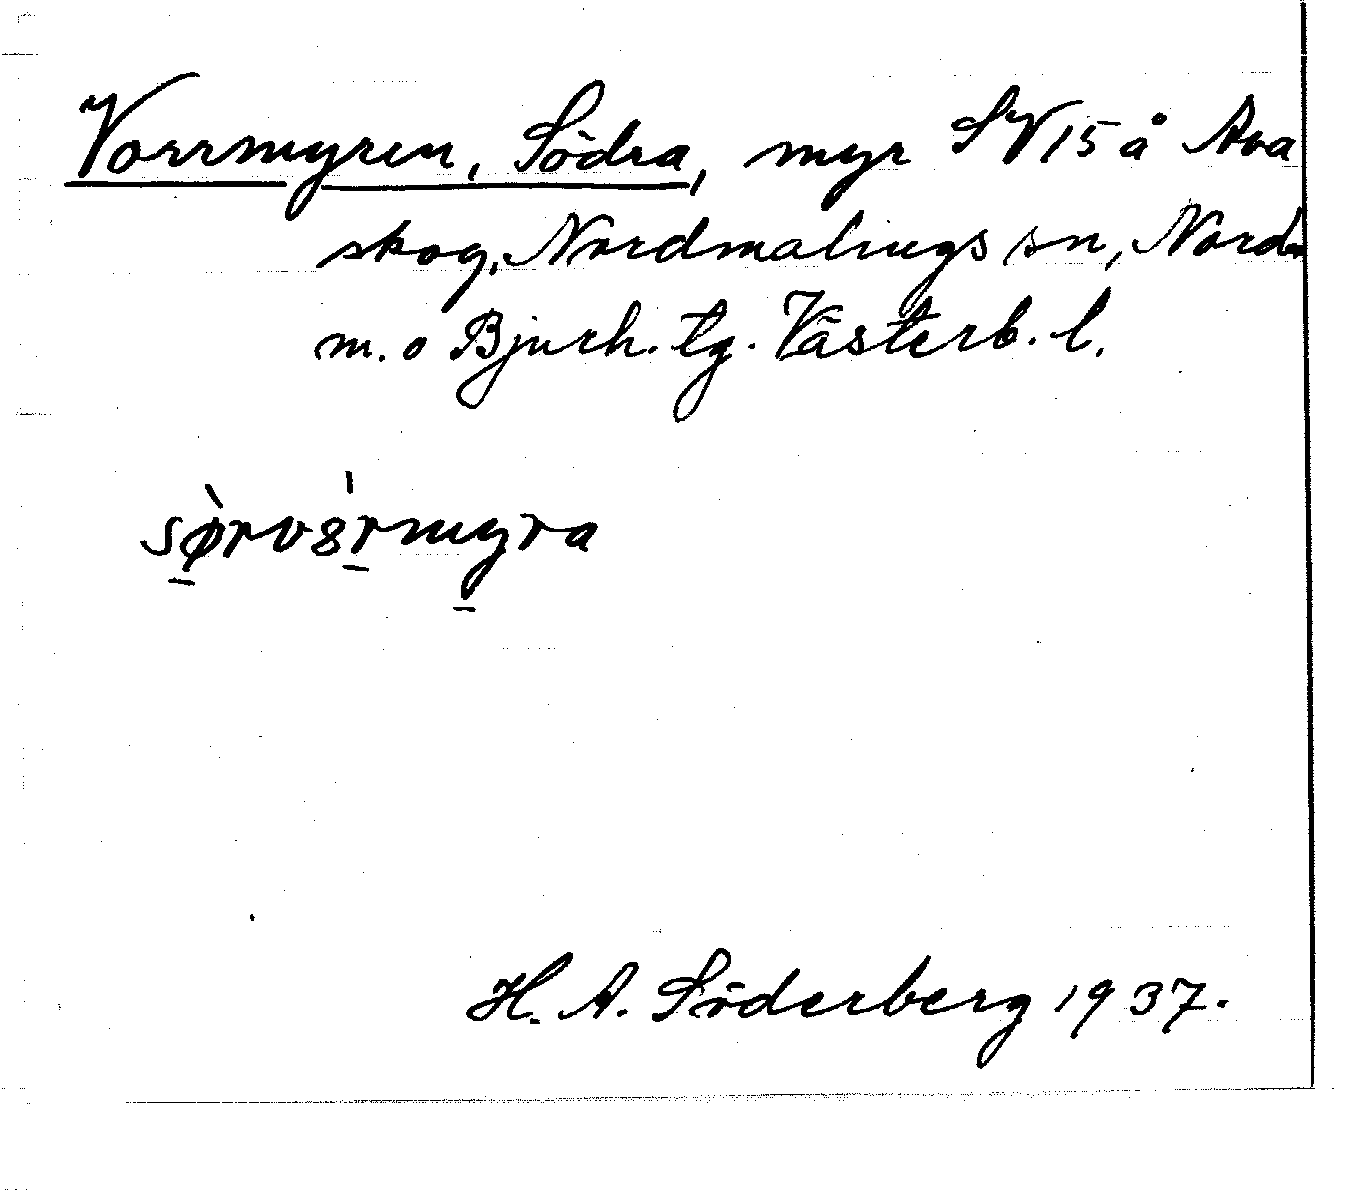 Vorrmyren, Södra, myr SV 15 å Ava
skog, Nordmalings sn, Nord
m. o Bjurh. tg. Västerb. l.
sø̀rv8̀rmyra
H. A. Söderberg 1937.